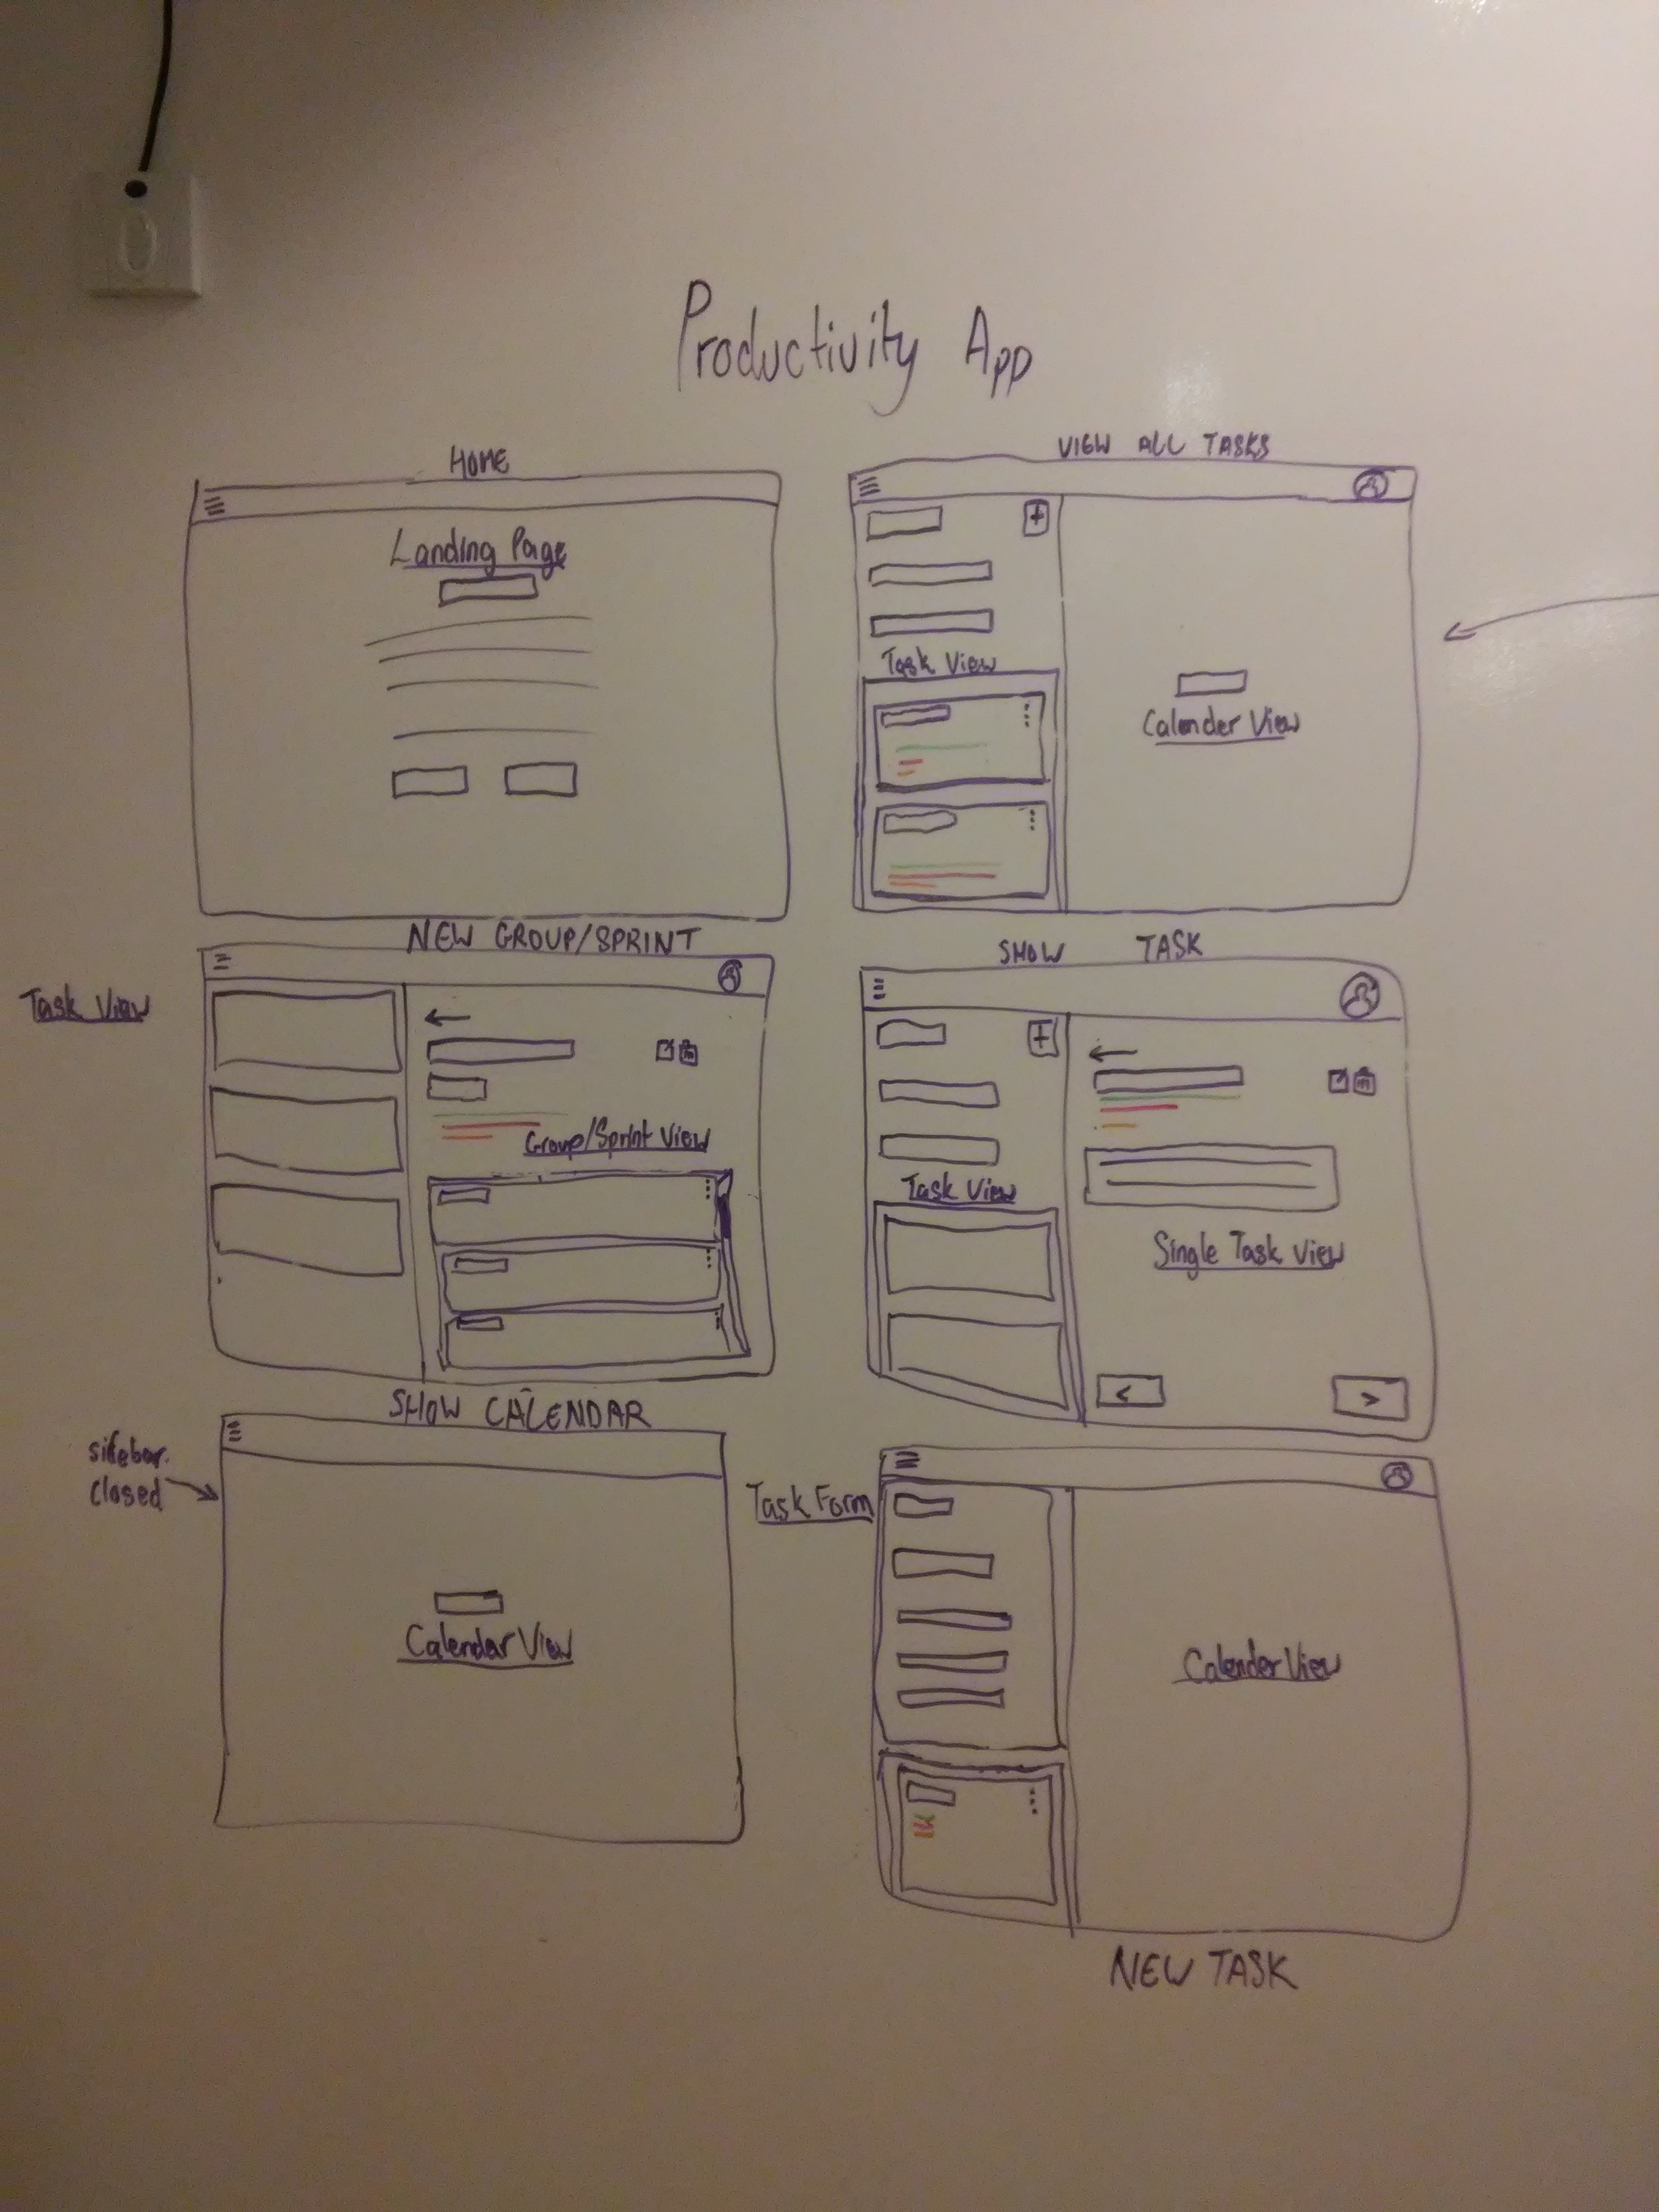 Productivity App
HOME
Landing Page
VIEW ALL TASKS
+
Task View
Calender View
NEW GROUP/SPRINT
Task View
Group/Sprint View
SHOW TASK
+
Task View
Single Task View
<
>
SHOW CALENDAR
sidebar
closed
Calendar View
Task Form
Calender View
NEW TASK